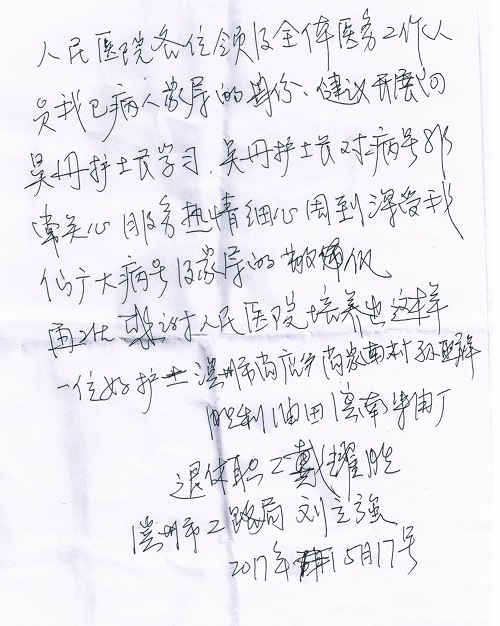 人民医院各位领及全体医务工作人
员我已病人家属的身份、健议开展向
吴丹护士长学习.吴丹护士长对病号非
常关心服务热情细心周到深受我
们广大病号及家属的敬佩
再次感谢人民医院培养出这样
一位好护士 滨州市尚店乡尚家南村孙
胜利油田滨南采油厂
退休职工戴耀胜
滨州市公路局 刘立强
2017年5月17号